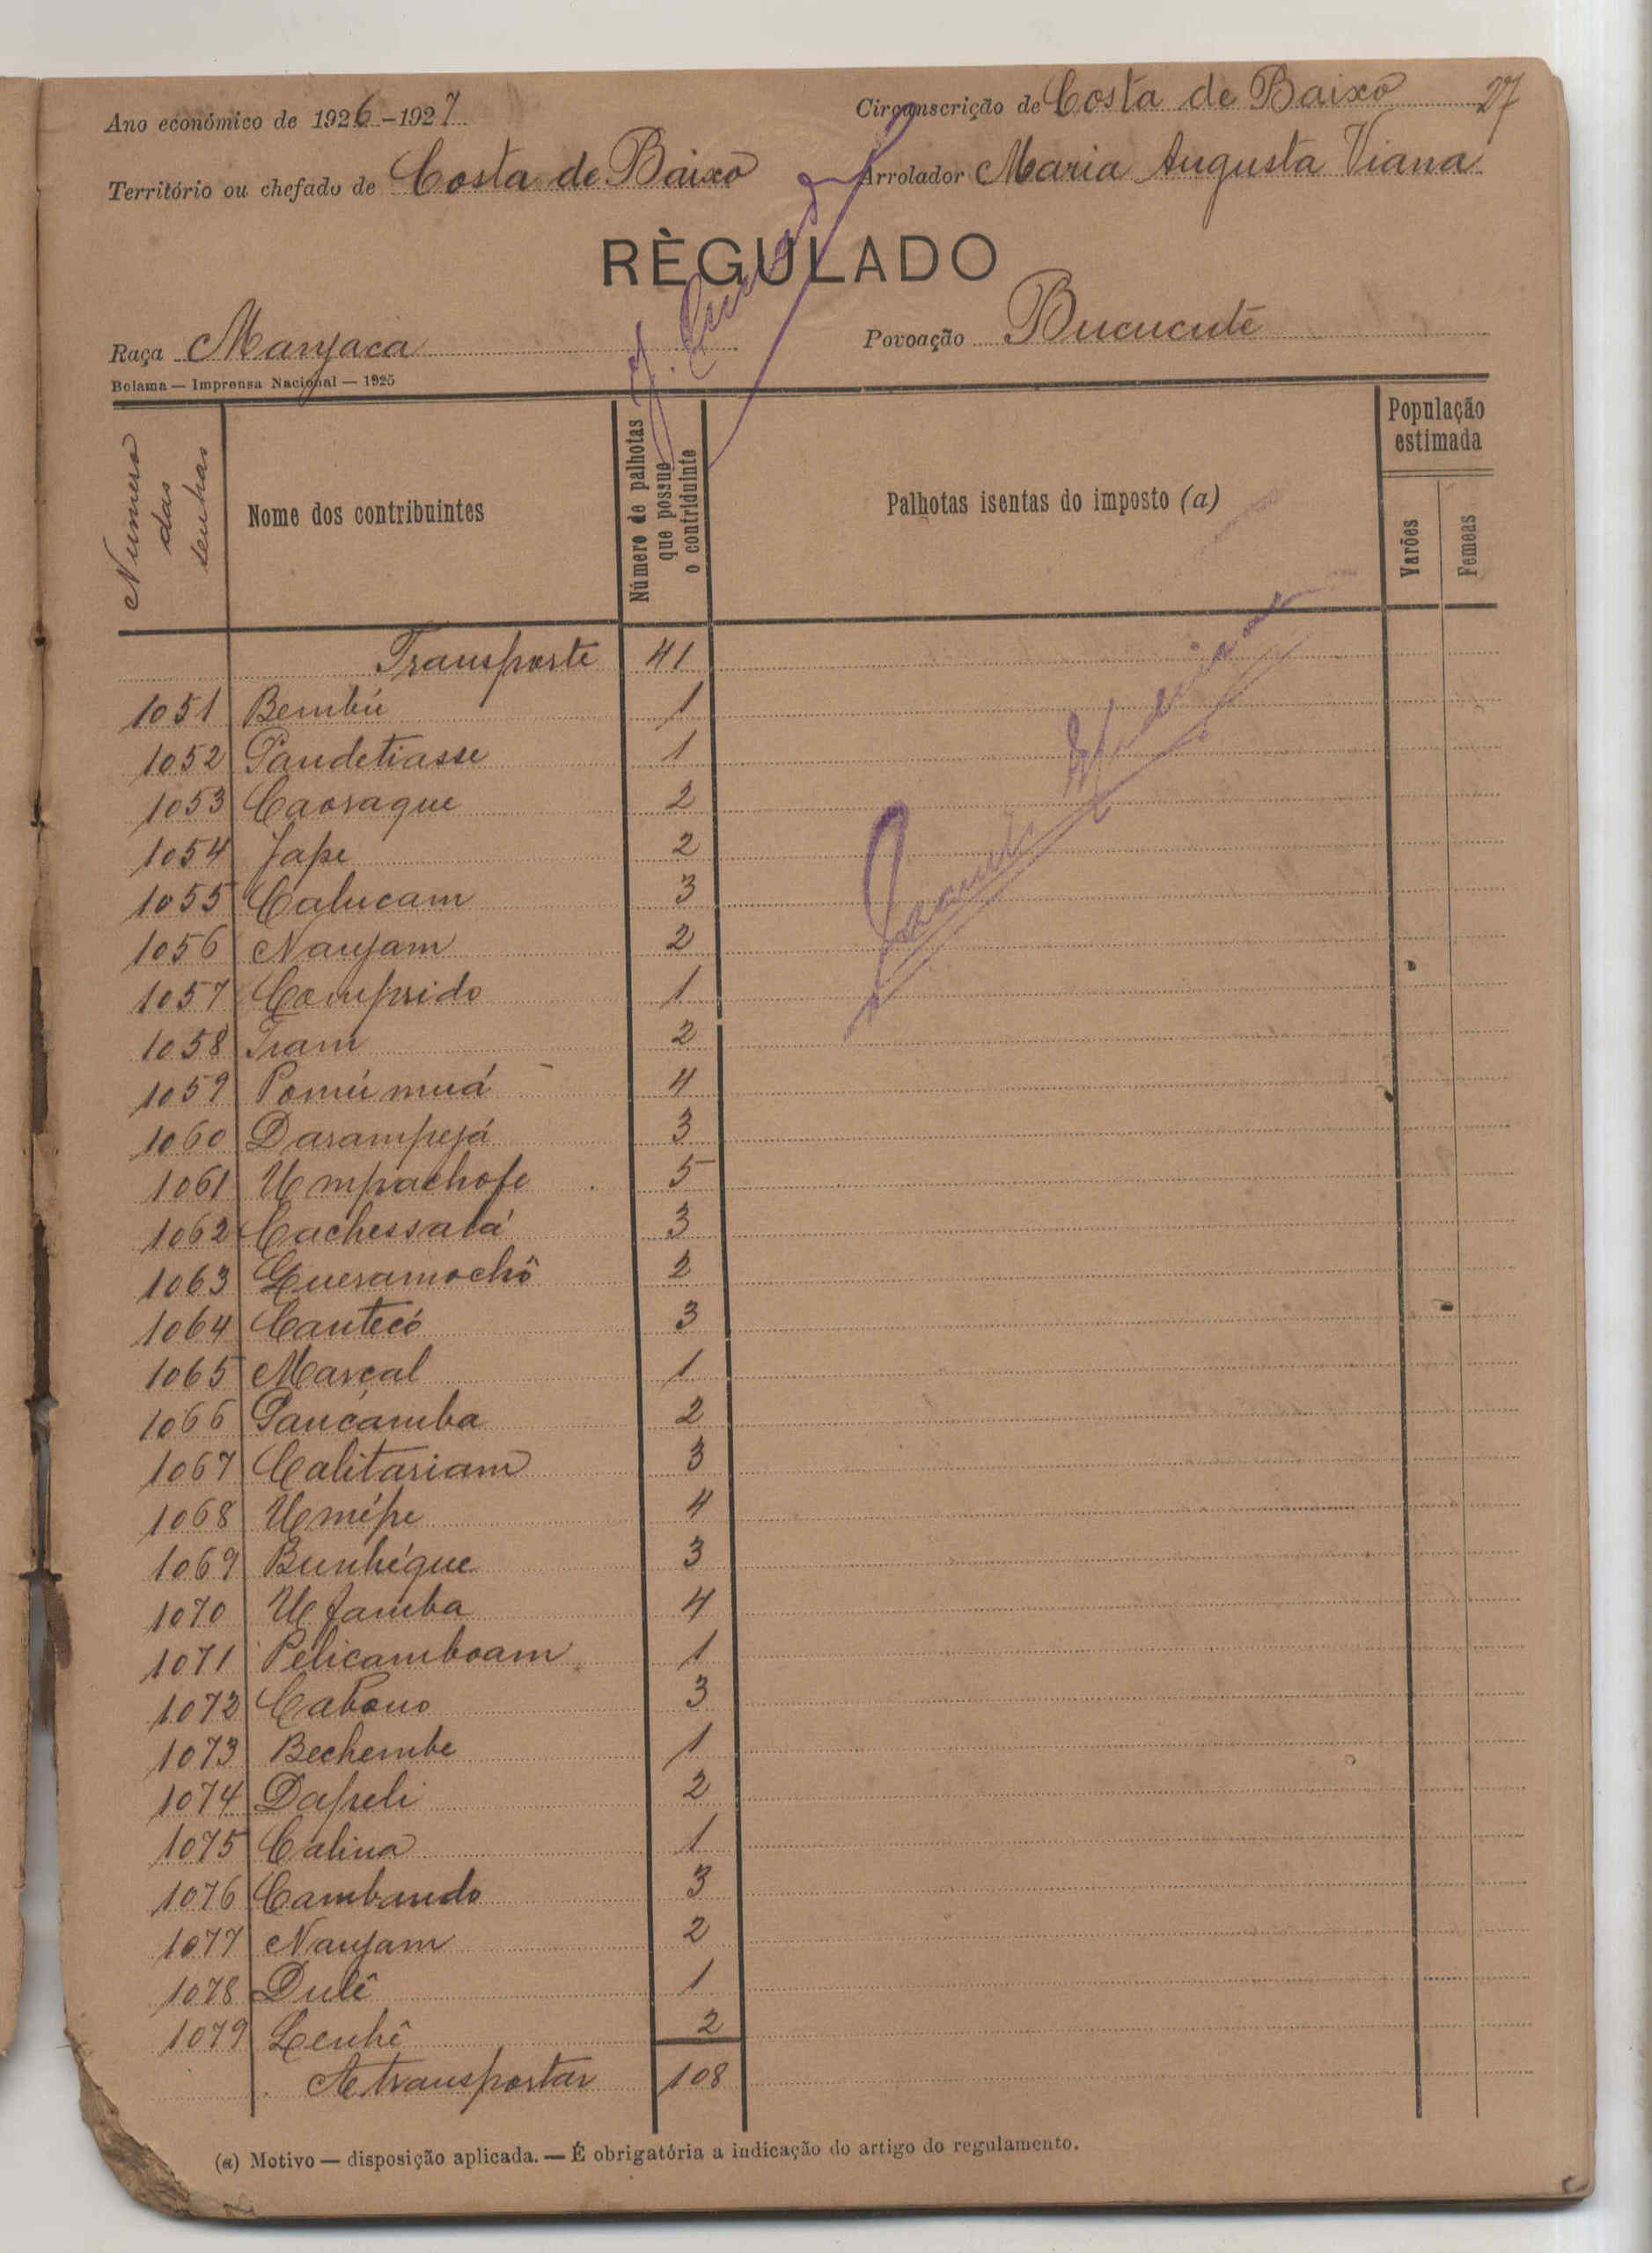 27
Ano económico de 1926-1927 Circunscrição de Costa de Baixo
Território ou chefado de Costa de Baixo Arrolador Maria Augusta Viana
RÈGULADO
Raça Manjaca Povoação Bucucute
Bolama — Imprensa Nacional — 1925
Numero das senhas
Nome dos contribuintes
Número de palhotas que possue o contriduinte
Palhotas isentas do imposto (a)
População estimada
Varões
Femeas
Transporte 41
1051 Bembú 1
1052 Pandetiasse 1
1053 Caoraque 2
1054 Jape 2
1055 Calucam 3
1056 Nanjam 2
1057 Comprido 1
1058 Iram 2
1059 Pomúmuá 4
1060 Darampejá 3
1061 Umpachofe 5
1062 Cachessalá 3
1063 Queramochô 2
1064 Cantecó 3
1065 Marcal 1
1066 Pancamba 2
1067 Calitariam 3
1068 Umépe 4
1069 Bunhéque 3
1070 Ufamba 4
1071 Pelicamboam 1
1072 Cabono 3
1073 Bechembe 1
1074 Dapeli 2
1075 Calina 1
1076 Cambando 3
1077 Nanjam 2
1078 Dulê 1
1079 Lenhê 2
A transportar 108
(a) Motivo — disposição aplicada. — É obrigatória a indicação do artigo do regulamento.